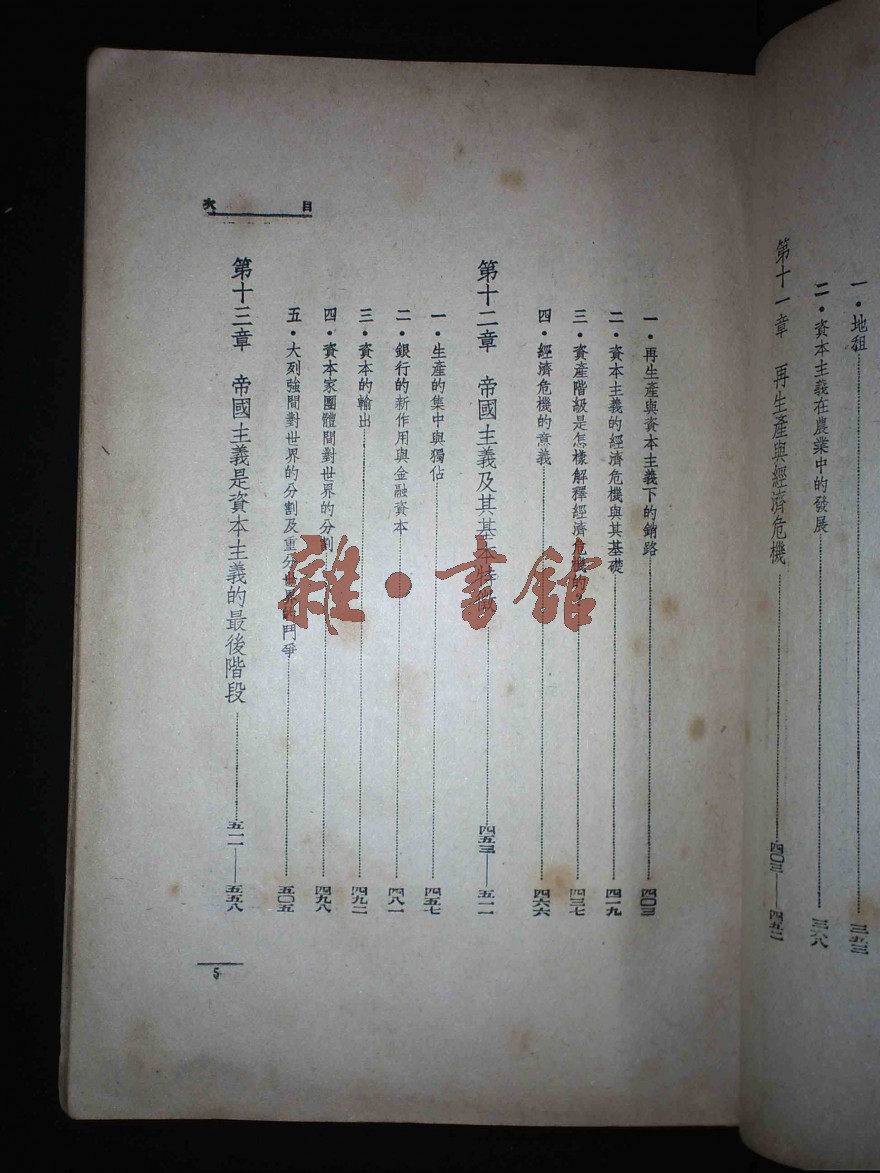 一・地租……三五三
二・資本主義在農業中的發展……三六八
第十一章　再生產與經濟危機……四〇三——四五二
目　次
一・再生產與資本主義下的銷路……四〇三
二・資本主義的經濟危機與其基礎……四一九
三・資產階級是怎樣解釋經濟危機的……四三七
四・經濟危機的意義……四六六
第十二章　帝國主義及其基本特徵……四五三——五一一
一・生產的集中與獨佔……四五七
二・銀行的新作用與金融資本……四八一
三・資本的輸出……四九二
四・資本家團體間對世界的分割……四九八
五・大列強間對世界的分割及重分世界的鬥爭……五〇五
第十三章　帝國主義是資本主義的最後階段……五一一——五五八
5
雜・書館